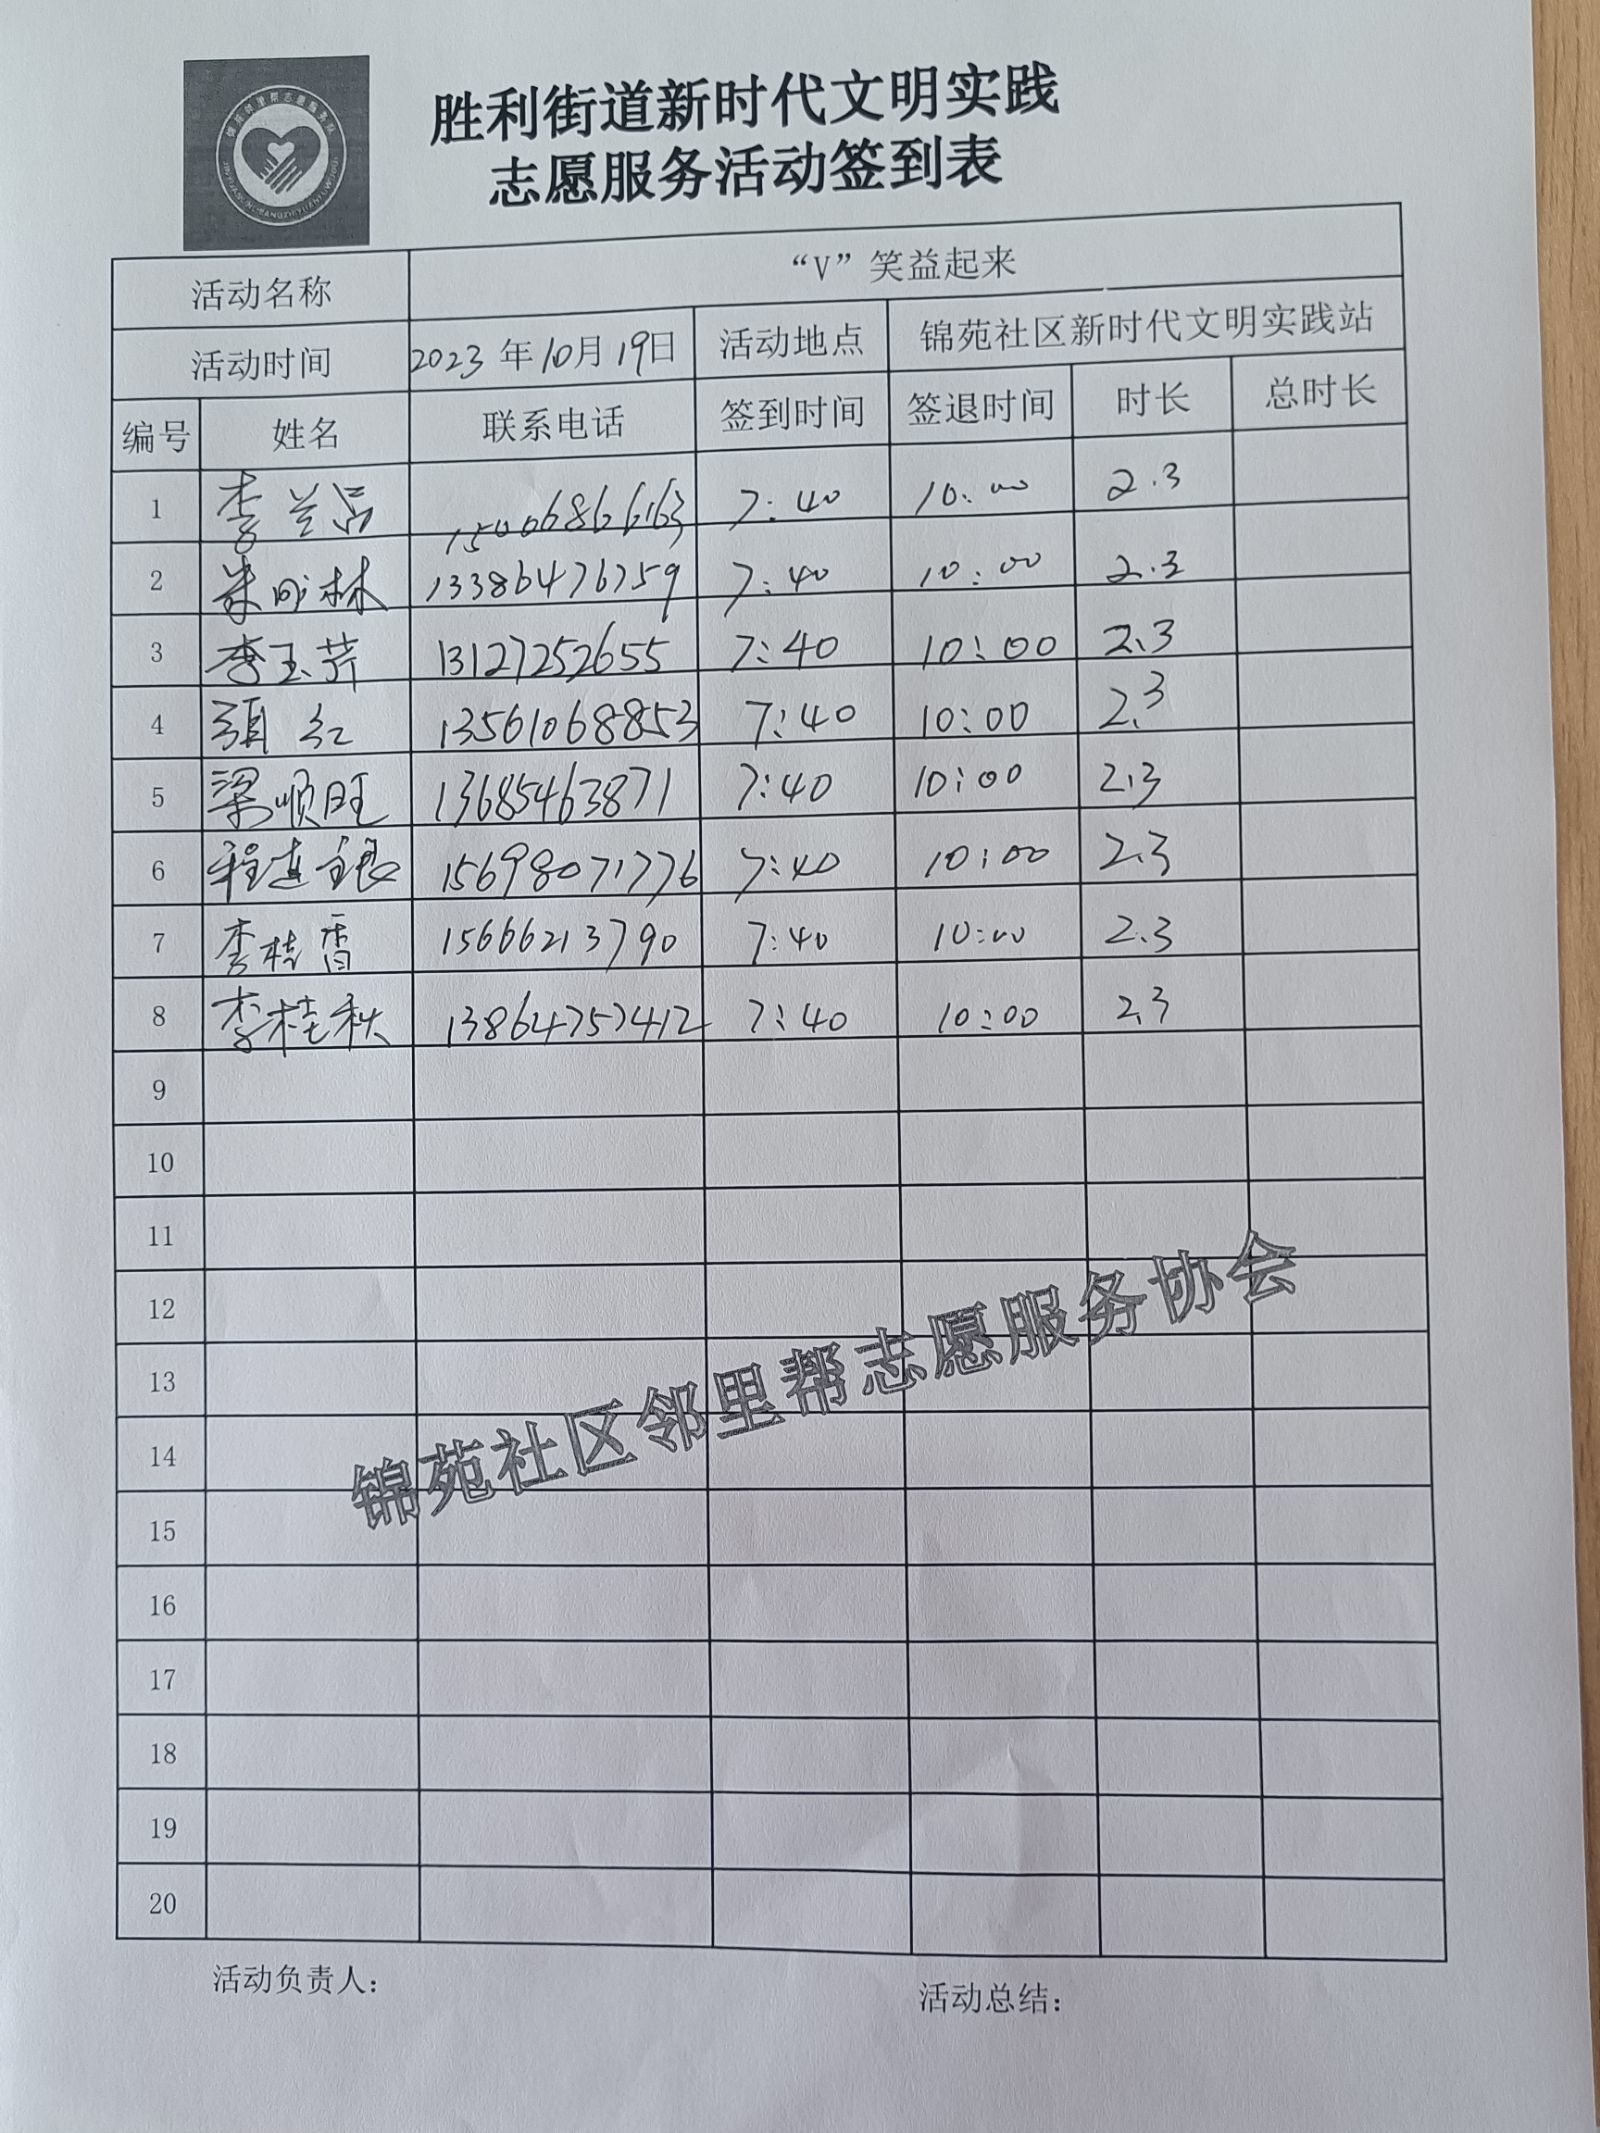 锦苑邻里帮志愿服务队
胜利街道新时代文明实践
志愿服务活动签到表
活动名称 “V”笑益起来
活动时间 2023年10月19日 活动地点 锦苑社区新时代文明实践站
编号 姓名 联系电话 签到时间 签退时间 时长 总时长
1 李兰 15006866163 7:40 10:00 2.3
2 林 13386476759 7:40 10:00 2.3
3 李玉芹 13127252655 7:40 10:00 2.3
4 红 13561068853 7:40 10:00 2.3
5 梁顺旺 13685463871 7:40 10:00 2.3
6 程连银 15698071776 7:40 10:00 2.3
7 李桂香 15666213790 7:40 10:00 2.3
8 李桂秋 13864757412 7:40 10:00 2.3
9
10
11
12
13
14
15
16
17
18
19
20
锦苑社区邻里帮志愿服务协会
活动负责人： 活动总结：